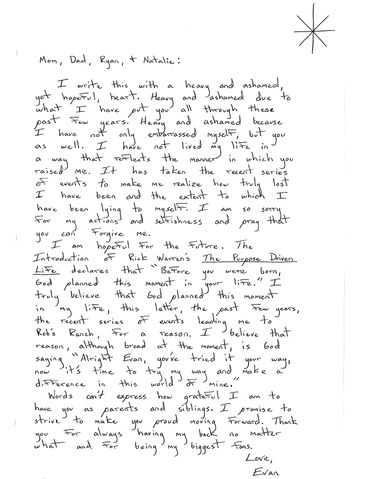 Mom, Dad, Ryan, + Natalie:
I write this with a heavy and ashamed,
yet hopeful, heart. Heavy and ashamed due to
what I have put you all through these
past few years. Heavy and ashamed because
I have not only embarrassed myself, but you
as well. I have not lived my life in
a way that reflects the manner in which you
raised me. It has taken the recent series
of events to make me realize how truly lost
I have been and the extent to which I
have been lying to myself. I am so sorry
for my actions and selfishness and pray that
you can forgive me.
I am hopeful for the future. The
Introduction of Rick Warren's The Purpose Driven
Life declares that "Before you were born,
God planned this moment in your life." I
truly believe that God planned this moment
in my life, this letter, the past few years,
the recent series of events leading me to
Rob's Ranch, for a reason. I believe that
reason, although broad at the moment, is God
saying "Alright Evan, you've tried it your way,
now it's time to try my way and make a
difference in this world of mine."
Words can't express how grateful I am to
have you as parents and siblings. I promise to
strive to make you proud moving forward. Thank
you for always having my back no matter
what and for being my biggest fans.
Love,
Evan